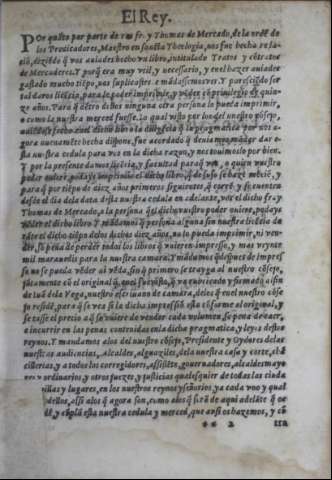 El Rey.
Por quāto por parte de vos fr. y Thomas de Mercado, de la ordē de
los Predicadores, Maestro en sancta Theologia, nos fue hecha rela-
ciō, diziēdo q̄ vos auiades hecho vn libro, intitulado Tratos y cōtratos
de Mercaderes. Y porq̄ era muy vtil, y necessario, y en el hazer auiades
gastado mucho tiēpo, nos suplicastes
daros licēcia, para lo poder imprimir, y priuilegio de quin-
ze años. Para q̄ dētro dellos ninguna otra persona lo pueda imprimir,
o como la nuestra merced fuesse. Lo qual visto por los del nuestro cōsejo,
el dicho libro la diligēcia q̄ la pragmatica por nos a-
gora nueuamēte hecha dispone, fue acordado q̄ deuiamos mādar dar e-
sta nuestra cedula para vos en la dicha razon, y nos tuuimoslo por bien.
Y por la presente damos licēcia, y facultad para q̄ vos, o quien vuestro
poder ouiere, podays imprimir el dicho libro, q̄ de suso se haze mēciō, y
para q̄ por tiēpo de diez años primeros siguientes, q̄ corrā y se cuenten
desde el dia de la data desta nuestra cedula en adelante, vos el dicho fr. y
Thomas de Mercado, o la persona q̄ el dicho vuestro poder ouiere, podays
vēder el dicho libro. Y mādamos q̄ persona alguna sin vuestra licēcia du-
rāte el dicho tiēpo delos dichos diez años, no lo pueda imprimir, ni ven-
der, so pena de perder todos los libros q̄ vuieren impresso, y mas veynte
mil marauedis para la nuestra camara. Y mādamos q̄ despues de impres-
so no se pueda vēder al vēda, sin q̄ primero se trayga al nuestro cōsejo,
jūtamente cō el original q̄ en el fue visto, q̄ va rubricado y firmado al fin
de la vega, nuestro escriuano de camara, delos q̄ en el nuestro cōse-
jo residē, para q̄ se vea si la dicha impressiō esta cōforme al original, y
se tasse el precio a q̄ se vuiere de vender cada volumen, so pena de caer,
e incurrir en las penas contenidas en la dicha pragmatica, y leyes destos
reynos. Y mandamos alos del nuestro cōsejo, Presidente y Oydores delas
nuestras audiencias, Alcaldes, alguaziles, dela nuestra casa y corte, chā-
cillerias, a todos los corregidores, assistēte, gouernadores, alcaldes mayo-
res y ordinarios, y otros juezes, y justicias qualesquier de todas las ciuda-
villas y lugares, en los nuestros reynos y señorios, ya cada vno y qual
dellos, assi alos q̄ agora son, como alos q̄ serā de aqui adelāte q̄ os
dē, y cūplā esta nuestra cedula y merced, que ansi os hazemos, y cō
2 tra